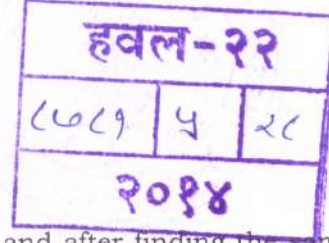 हवल-२२
८७८१ ५ २८
२०१४
and after finding the